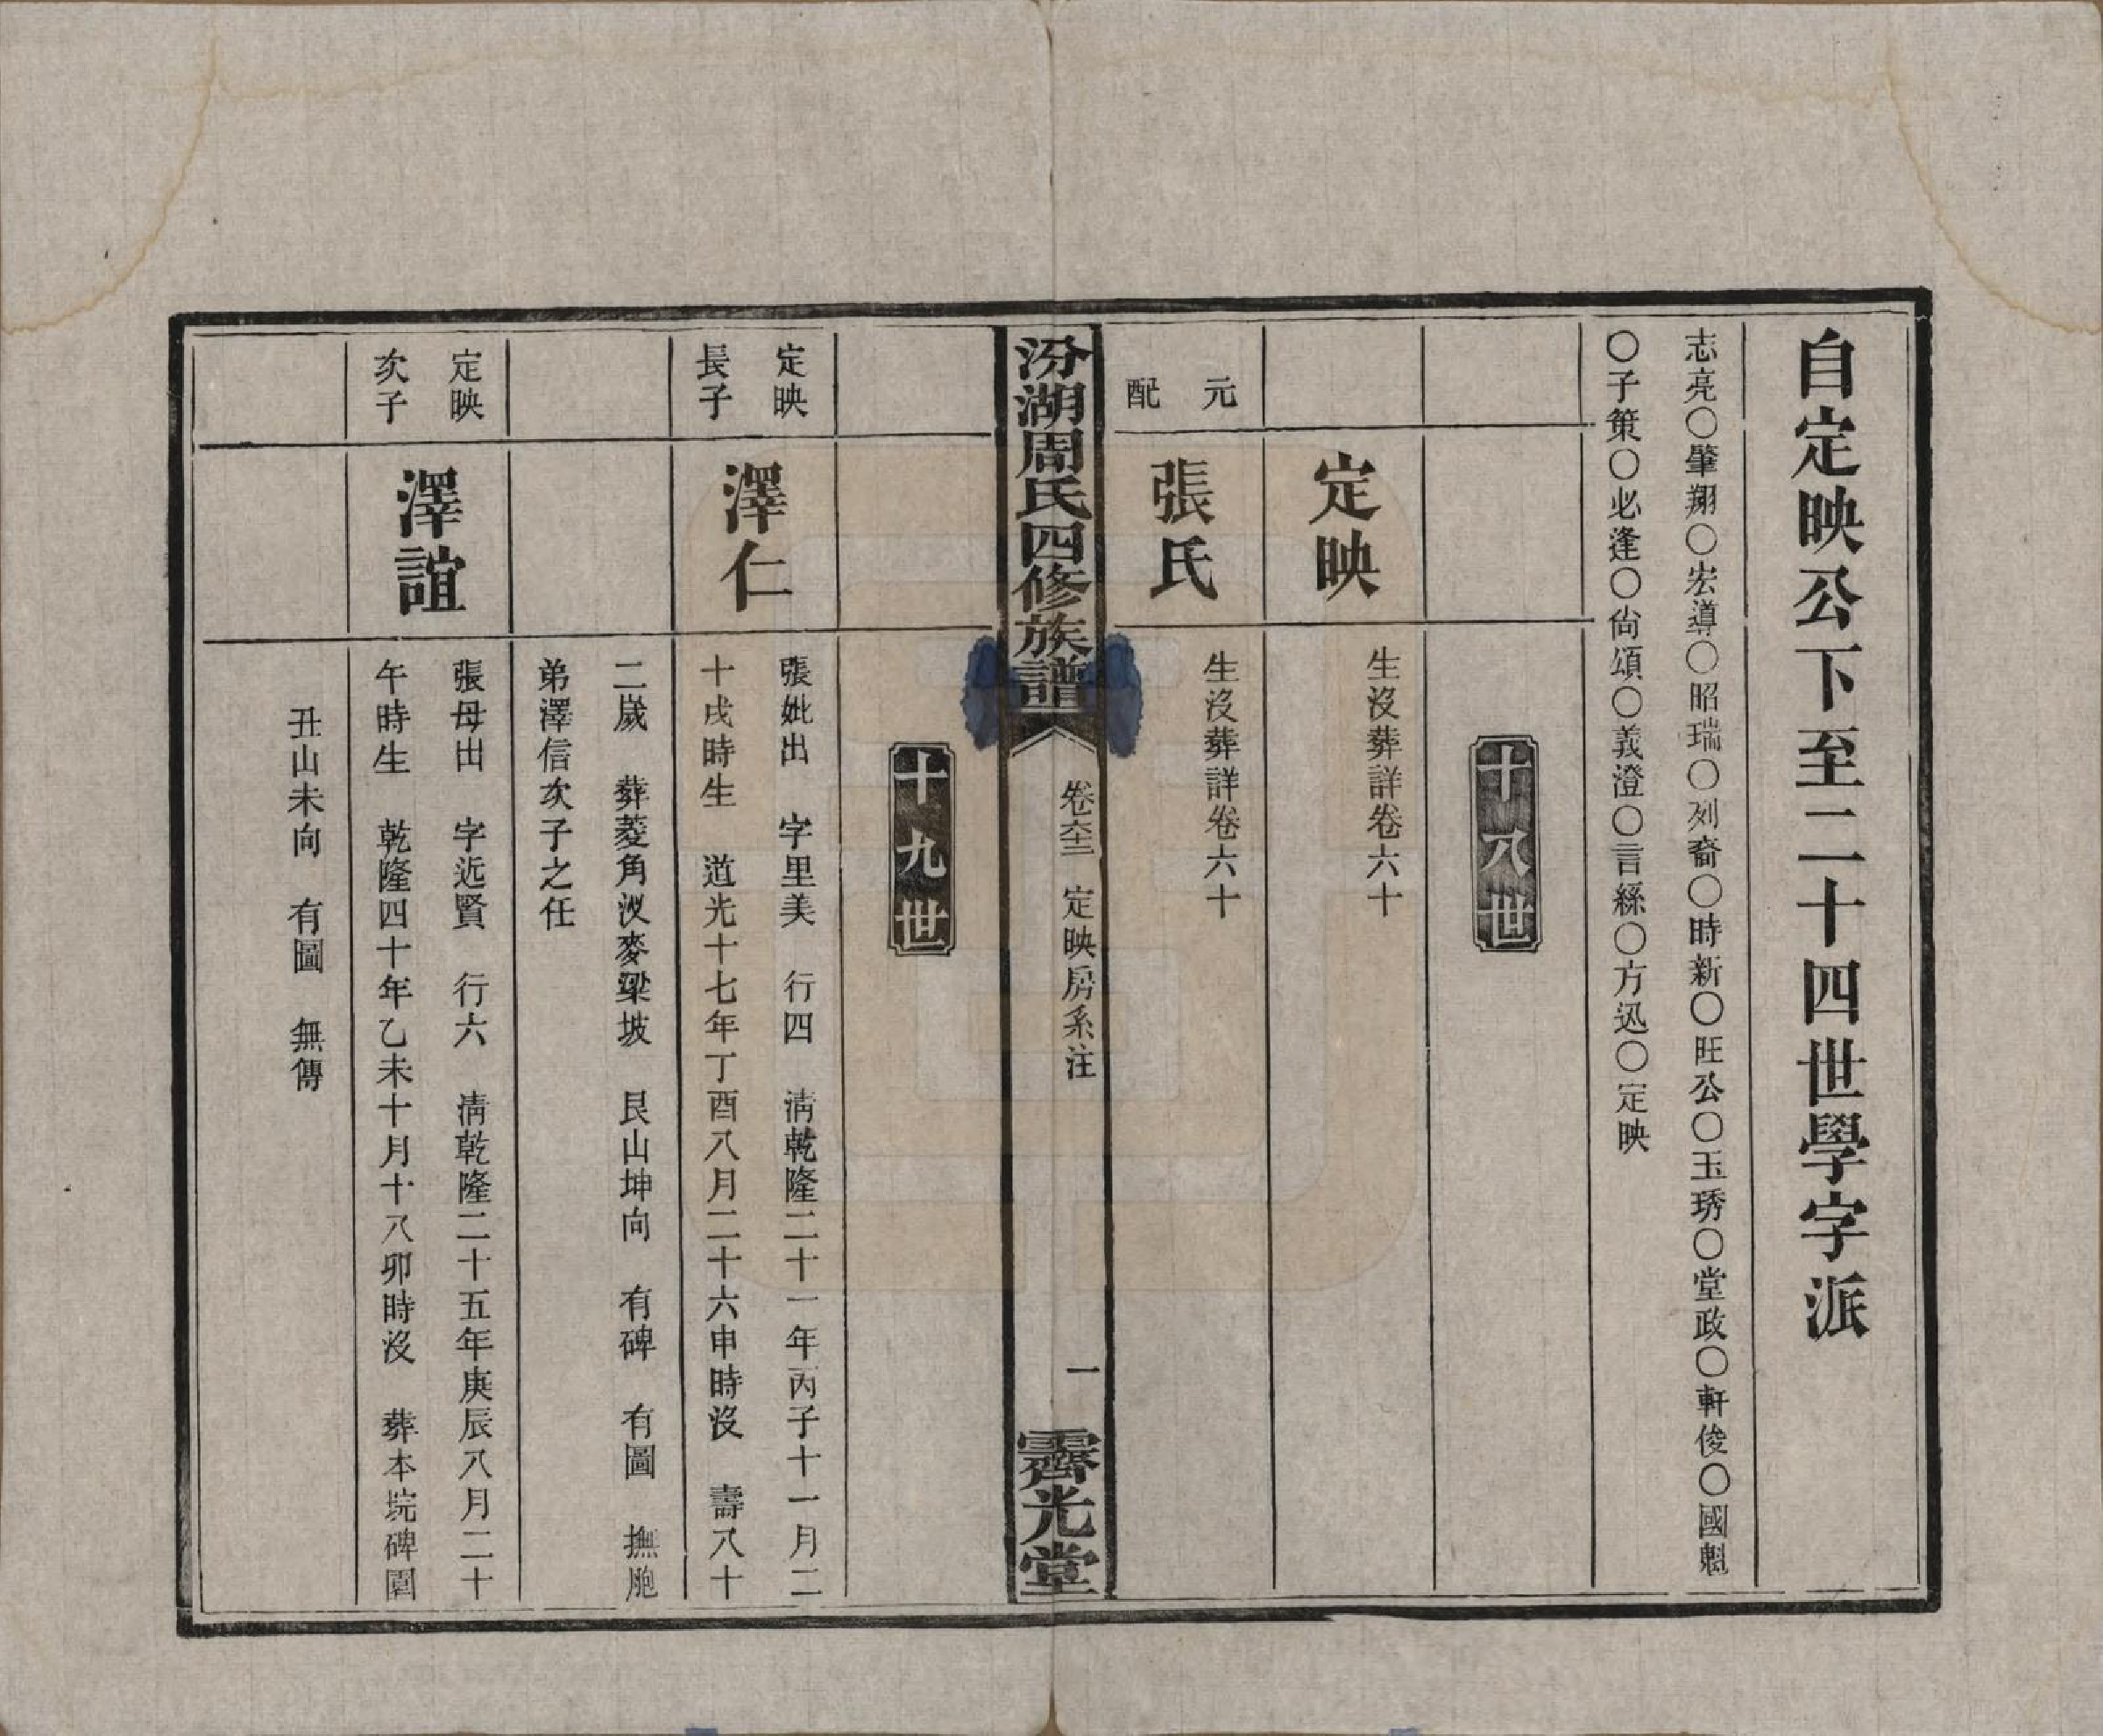 自定映公下至二十四世學字派
志亮〇肇翔〇宏導〇昭瑞〇列裔〇時新〇旺公〇玉琇〇堂政〇軒俊〇國魁
〇子策〇必逢〇尙頌〇義澄〇言綵〇方迅〇定映
十八世
定映
生沒葬詳卷六十
元
配
張氏
生沒葬詳卷六十
汾湖周氏四修族譜
卷六十二
定映房系注
一
霽光堂
十九世
定映
長子
澤仁
張妣出 字里美 行四 淸乾隆二十一年丙子十一月二
十戌時生 道光十七年丁酉八月二十六申時沒 壽八十
二歲 葬菱角㳇麥梁坡 艮山坤向 有碑 有圖 撫胞
弟澤信次子之任
定映
次子
澤誼
張母出 字近賢 行六 淸乾隆二十五年庚辰八月二十
午時生 乾隆四十年乙未十月十八卯時沒 葬本垸碑園
丑山未向 有圖 無傳